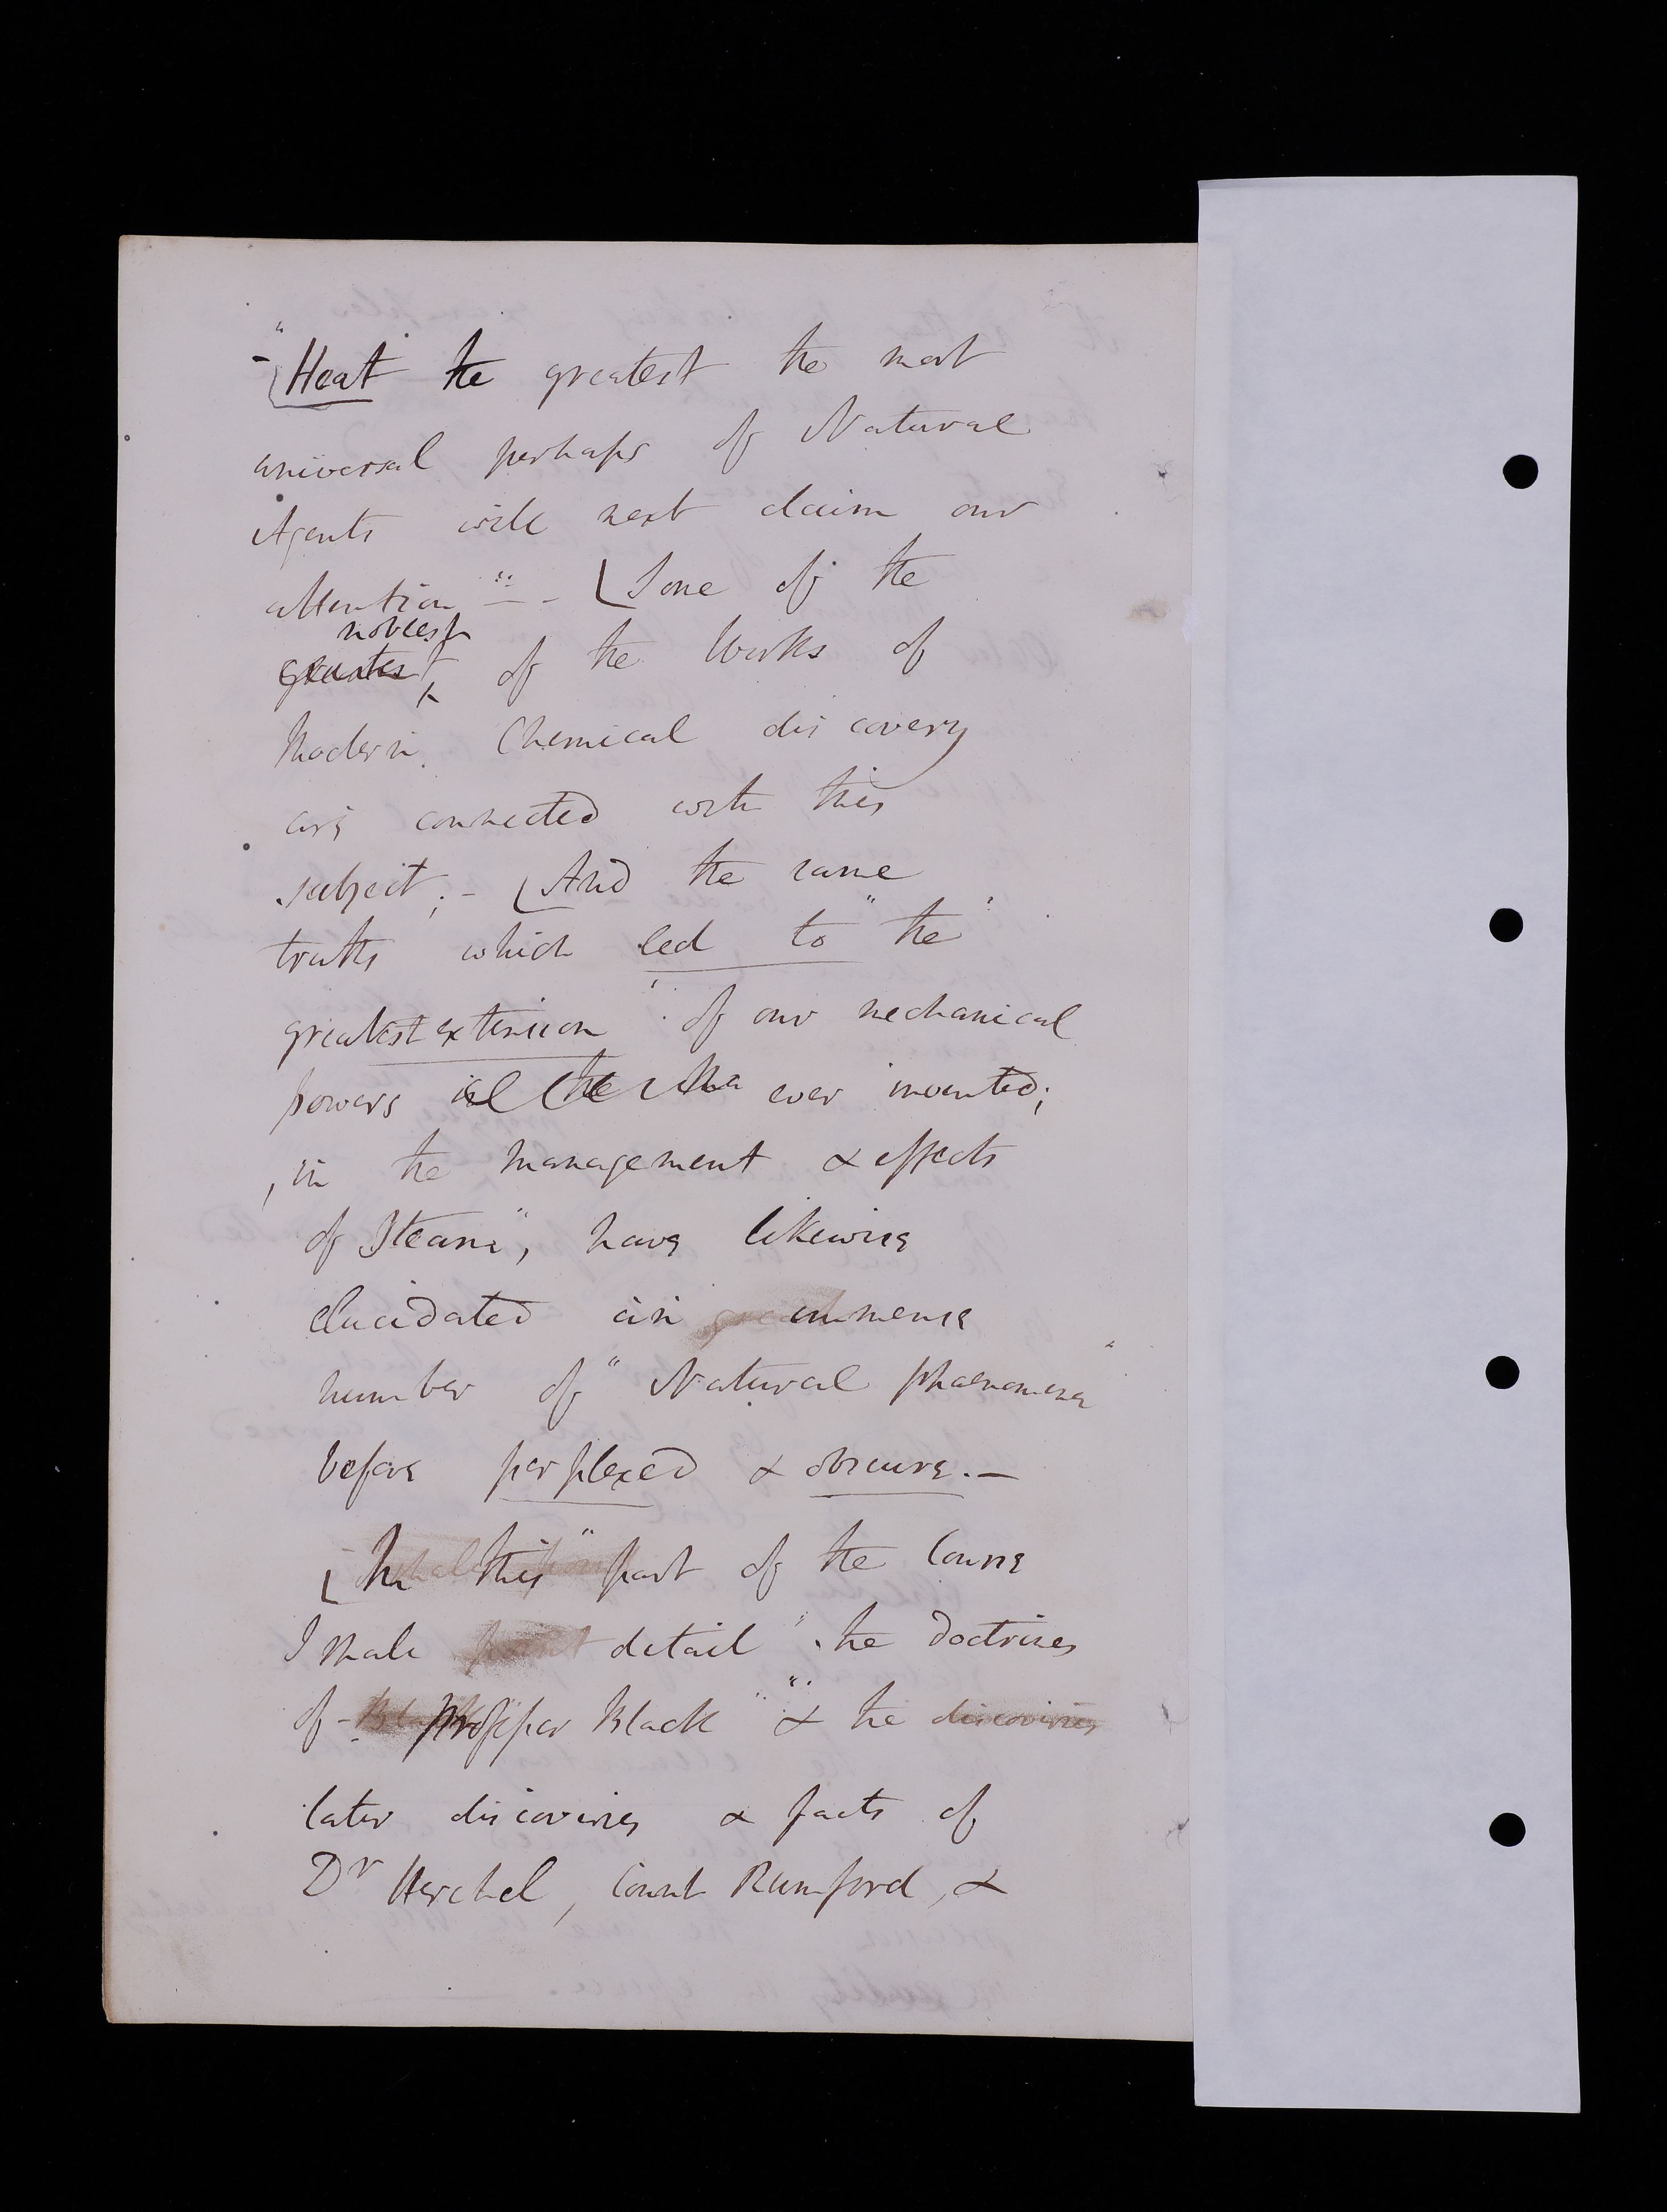 "Heat the greatest the most
universal perhaps of Natural
Agents will next claim our
attention" - - Some of the
noblest
greatest of the Works of
Modern Chemical discovery
are connected with this
subject; - And the same
truths which led to "the"
greatest extension "of our mechanical
powers ever invented;
in the management & effects
of Steam", have likewise
elucidated an immense
number of "Natural phaenomena"
before perplexed & obscure. —
In this "part of the Course
I shall detail" the doctrines
of - Black " & the discoveries
later discoveries & facts of
Dr Herchel, Count Rumford, &